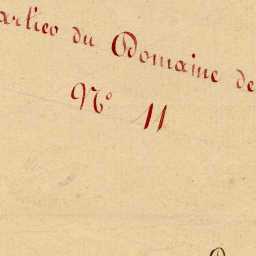 du Domaine de
N° 11